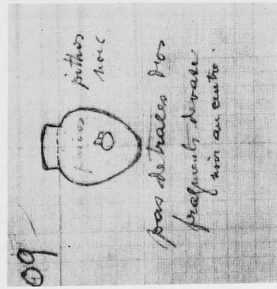 09
pithos
noir
pas de traces d'os
fragments de vase
noir au centre.